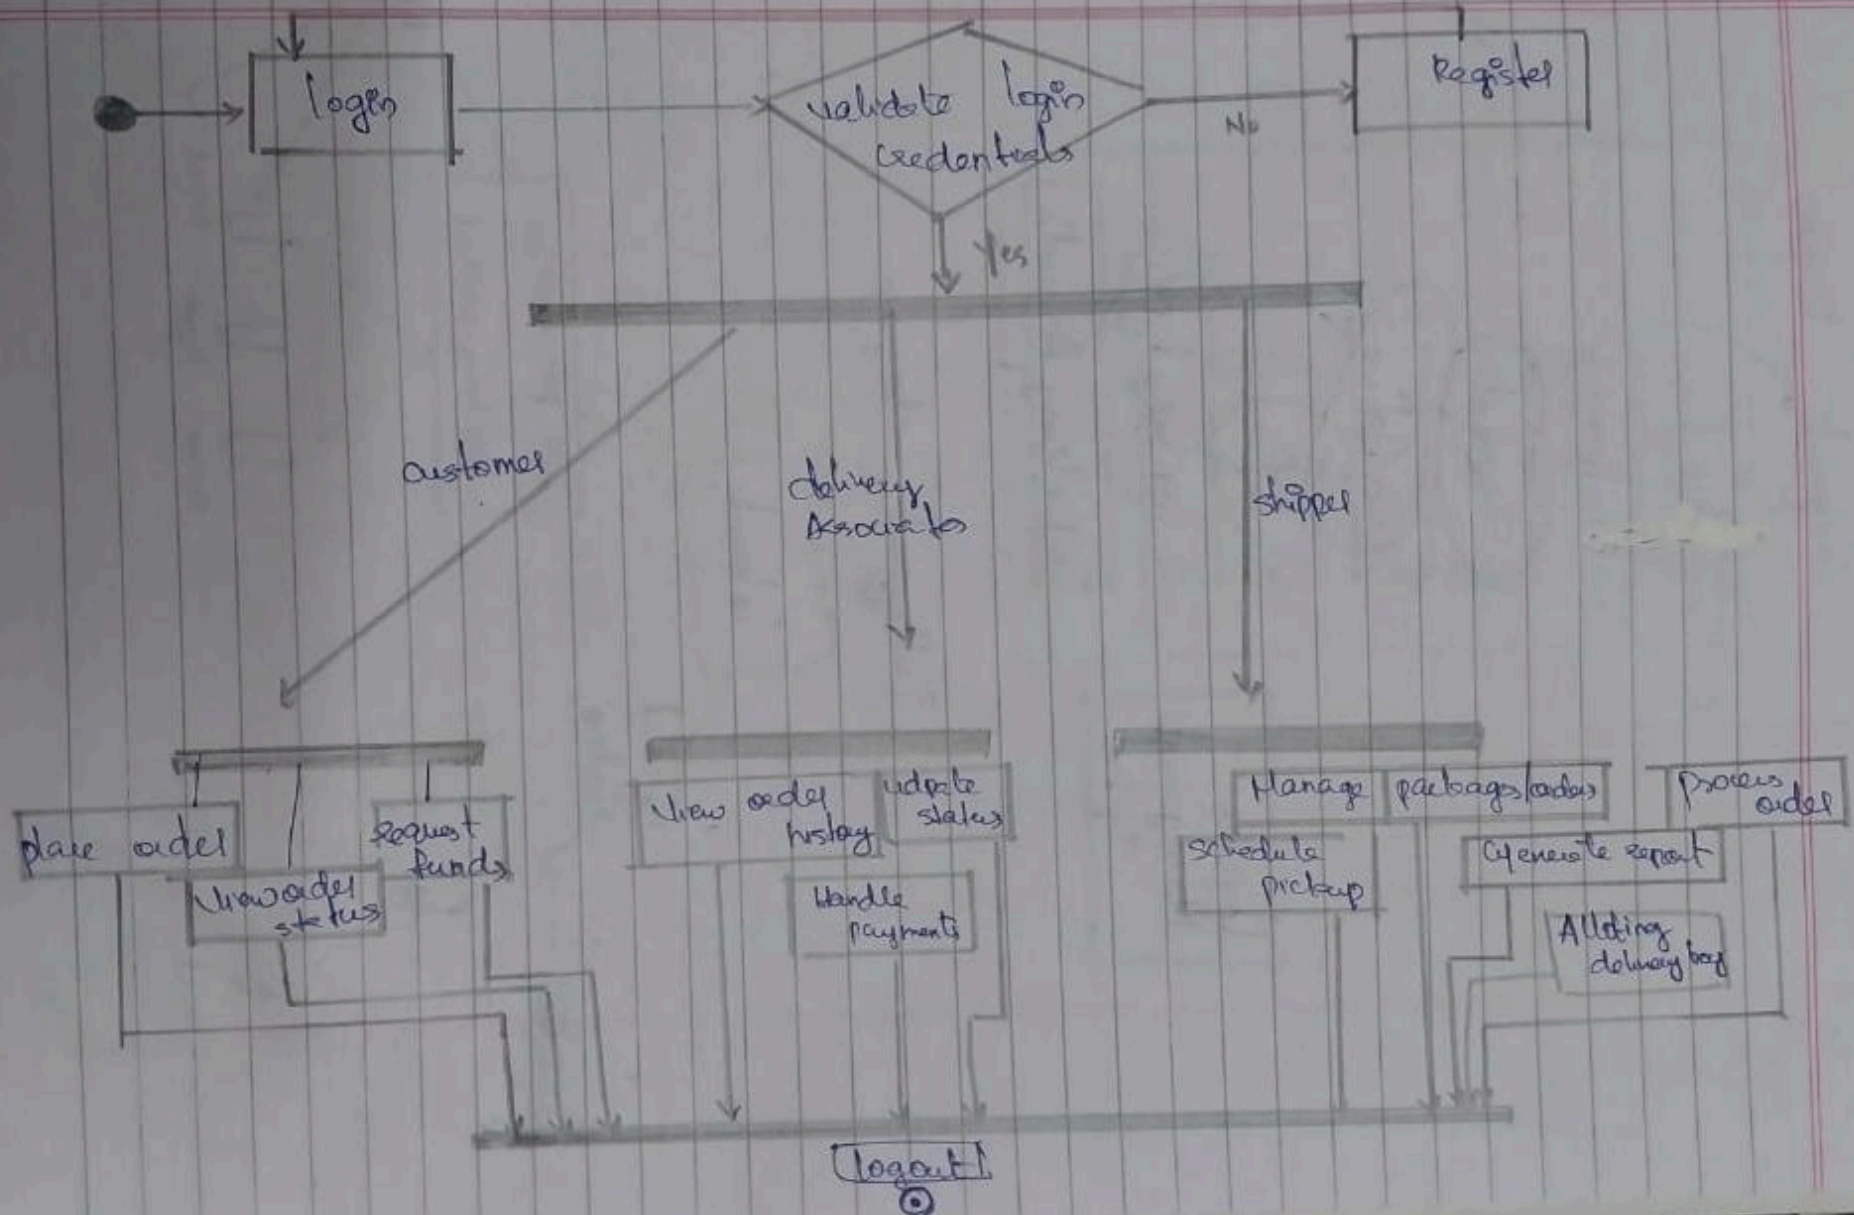 login
validate login
credentials
No
Register
Yes
customer
delivery
Associates
shipper
place order
View order
status
Request
funds
View order
history
udpate
status
Handle
payments
Manage packages/orders
schedule
pickup
Generate report
process
order
Alloting
delivery boy
logout